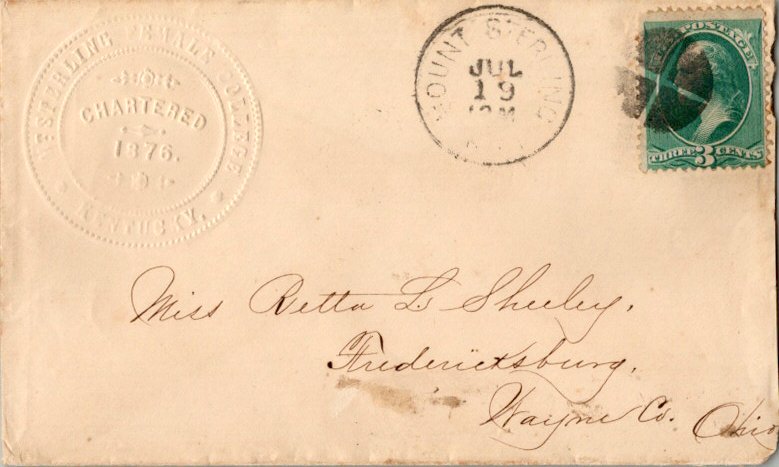 MT STERLING FEMALE COLLEGE
CHARTERED
1876.
KENTUCKY.
MOUNT STERLING
JUL
19
POSTAGE
THREE 3 CENTS
Miss Retta L. Sheeley.
Fredericksburg.
Wayne Co. Ohio